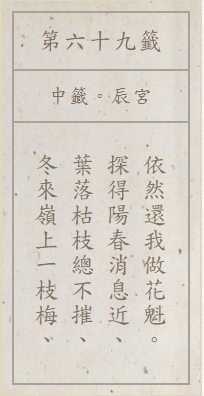 第六十九籤
中籤。辰宮
冬來嶺上一枝梅、
葉落枯枝總不摧、
探得陽春消息近、
依然還我做花魁。